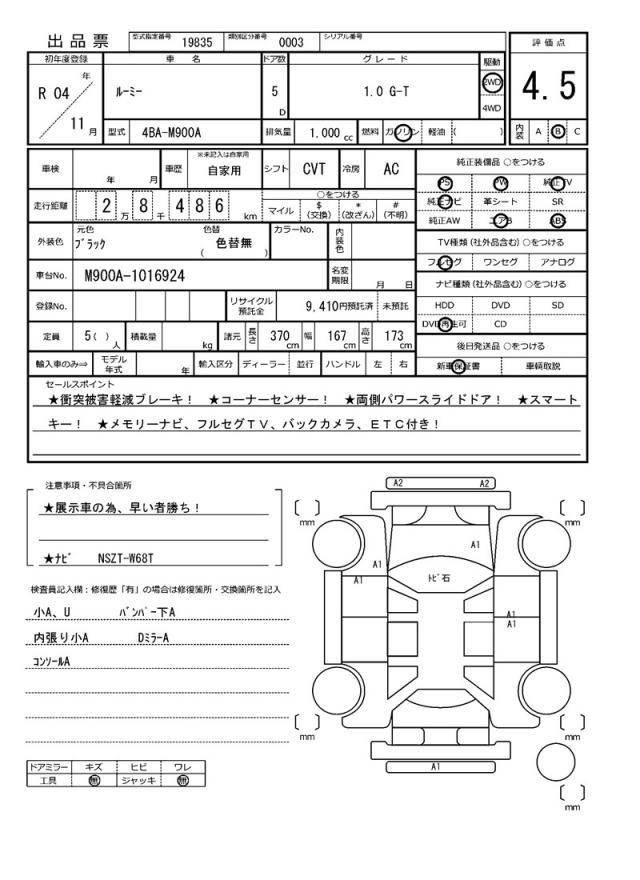 出品票
型式指定番号 19835 類別区分番号 0003 シリアル番号
初年度登録 車名 ドア数 グレード 駆動 評価点
R 04 年 11 月 ルーミー 5 D 1.0 G-T 2WD 4WD 4.5
型式 4BA-M900A 排気量 1.000 cc 燃料 ガソリン 軽油 ( ) 内装 A B C
車検 年 月 車歴 ※未記入は自家用 自家用 シフト CVT 冷房 AC 純正装備品 ○をつける
PS PW 純正TV
走行距離 2 万 8 千 4 8 6 km ○をつける 純正ナビ 革シート SR
マイル $(交換) *(改ざん) #(不明) 純正AW エアB ABS
外装色 元色 ブラック 色替 ( 色替無 ) カラーNo. 内装色 TV種類 (社外品含む) ○をつける
フルセグ ワンセグ アナログ
車台No. M900A-1016924 名変期限 月 日 ナビ種類 (社外品含む) ○をつける
登録No. リサイクル預託金 9,410円預託済 未預託 HDD DVD SD
DVD再生可 CD
定員 5( ) 人 積載量 kg 諸元 長さ 370 cm 幅 167 cm 高さ 173 cm 後日発送品 ○をつける
輸入車のみ⇒ モデル年式 年 輸入区分 ディーラー 並行 ハンドル 左 右 新車保証書 車輌取説
セールスポイント
★衝突被害軽減ブレーキ! ★コーナーセンサー! ★両側パワースライドドア! ★スマート
キー! ★メモリーナビ、フルセグTV、バックカメラ、ETC付き!
注意事項・不具合箇所
★展示車の為、早い者勝ち!
★ナビ NSZT-W68T
検査員記入欄:修復歴「有」の場合は修復箇所・交換箇所を記入
小A、U バンパー下A
内張り小A DミラーA
コンソールA
ドアミラー キズ ヒビ ワレ
工具 無 ジャッキ 無
A2 A2
mm mm
A1
A1
トビ石
A1
A1
A1
mm mm
A1
mm